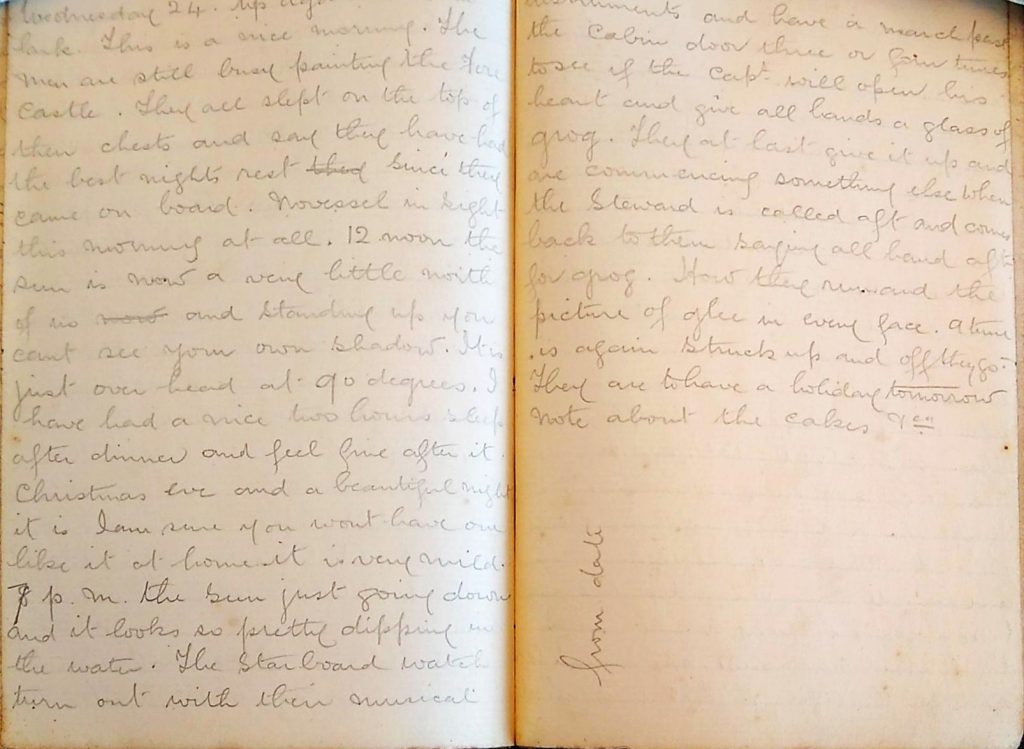 Wednesday 24. up again with the
lark. This is a nice morning. The
men are still busy painting the Fore
castle. They all slept on the top of
their chests and say they have had
the best nights rest they since they
came on board. No vessel in sight
this morning at all. 12 noon the
sun is now a very little north
of us now and standing up you
cant see your own shadow. It is
just over head at 90 degrees. I
have had a nice two hours sleep
after dinner and feel fine after it.
Christmas eve and a beautiful night
it is I am sure you wont have one
like it at home it is very mild.
8 p.m. the sun just going down
and it looks so pretty dipping in
the water. The Starboard watch
turn out with their musical
instruments and have a march past
the Cabin door three or four times
to see if the Capt. will open his
heart and give all hands a glass of
grog. They at last give it up and
are commencing something else when
the Steward is called aft and comes
back to them saying all hand aft
for grog. How they run and the
picture of glee in every face. A tune
is again struck up and off they go.
They are to have a holiday tomorrow
note about the cakes &c
from date